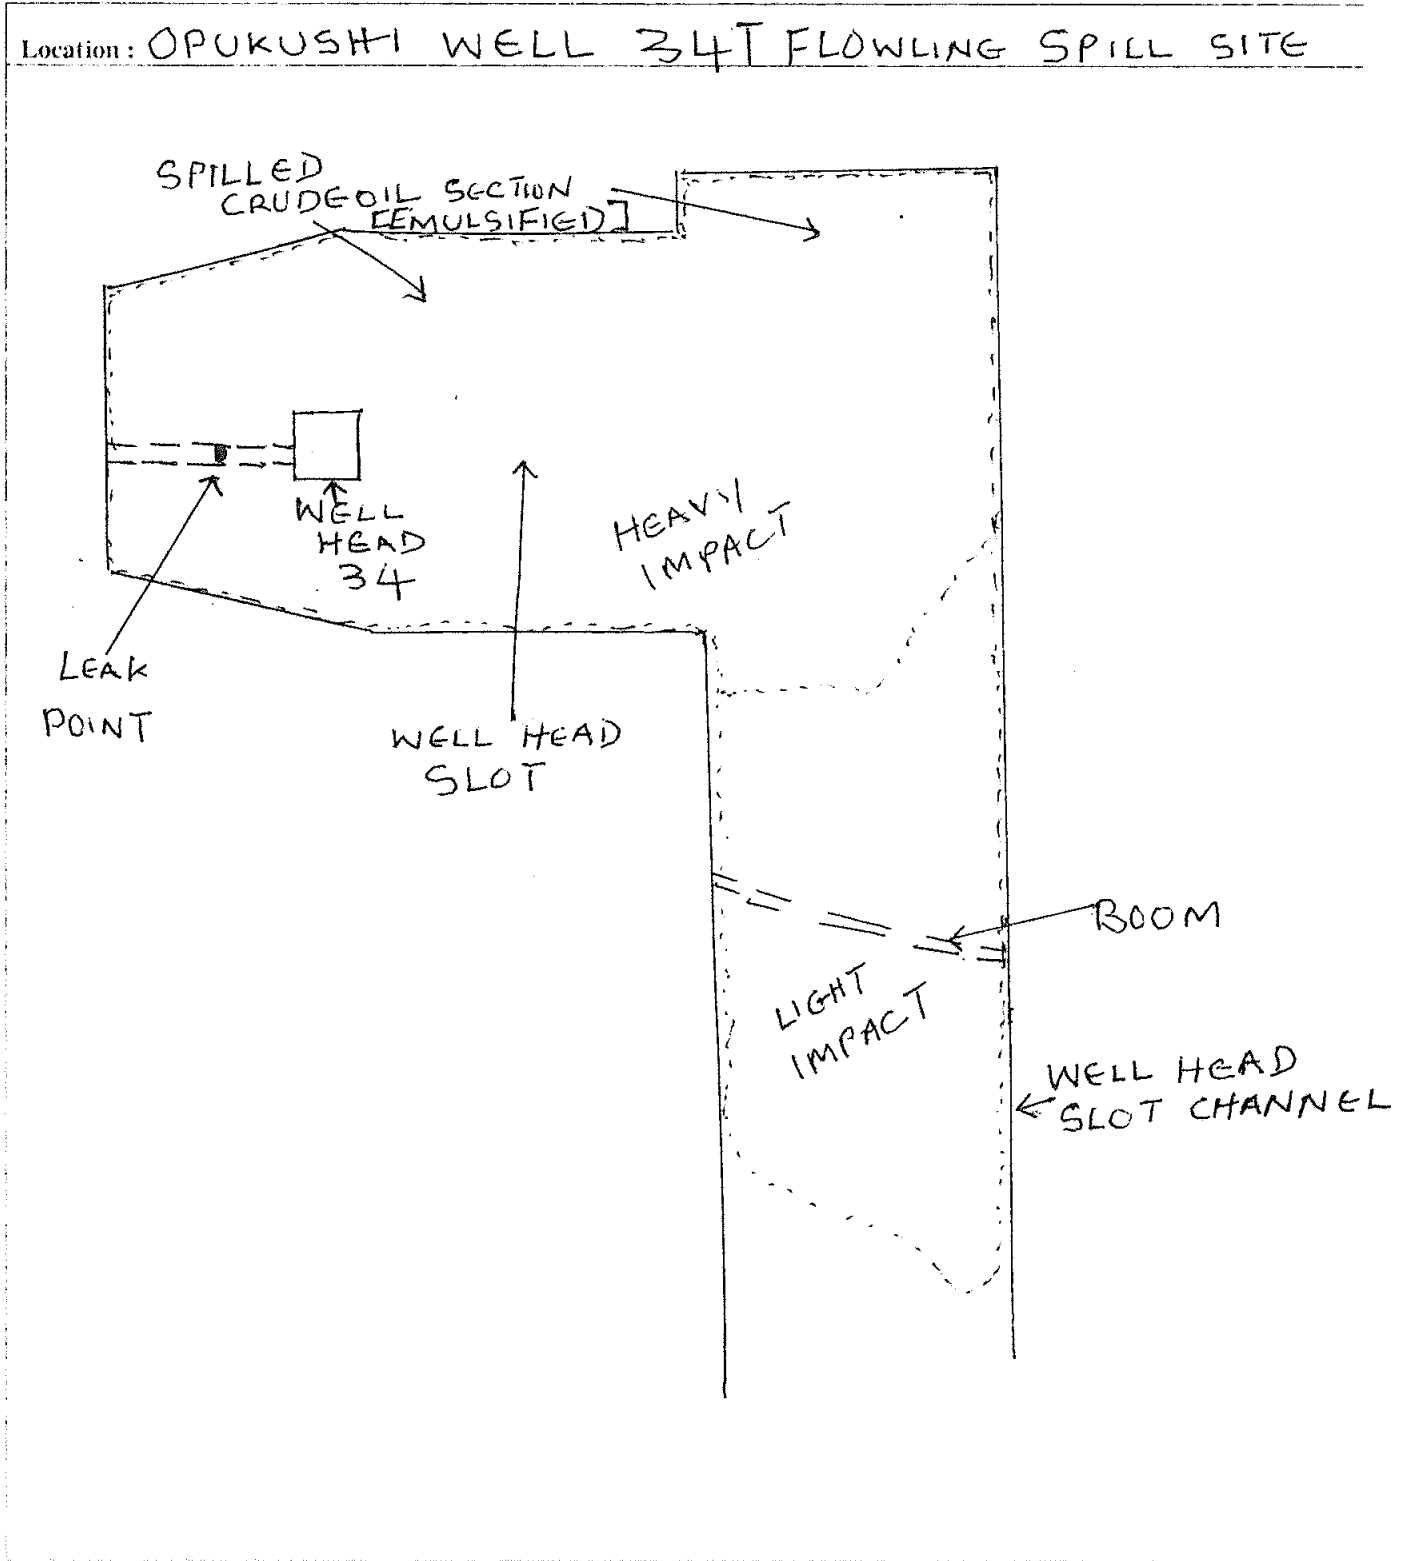 Location : OPUKUSHI WELL 34T FLOWLING SPILL SITE
SPILLED
CRUDEOIL SECTION
[EMULSIFIED]
WELL
HEAD
34
HEAVY
IMPACT
LEAK
POINT
WELL HEAD
SLOT
BOOM
LIGHT
IMPACT
WELL HEAD
SLOT CHANNEL